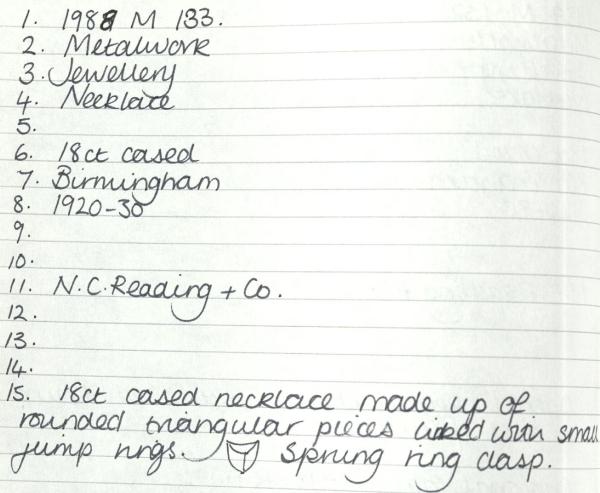 1. 1988 M 133.
2. Metalwork
3. Jewellery
4. Necklace
5.
6. 18ct cased
7. Birmingham
8. 1920-30
9.
10.
11. N.C. Reading + Co.
12.
13.
14.
15. 18ct cased necklace made up of
rounded triangular pieces linked with small
jump rings. Sprung ring clasp.